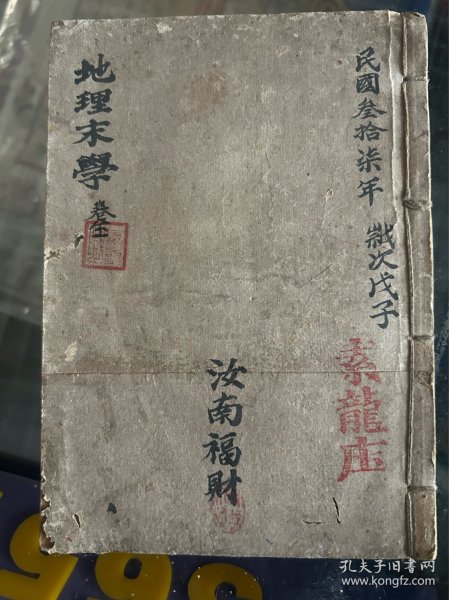 民國叁拾柒年 歲次戊子
素龍庄
汝南福財
地理末學
卷五
孔夫子旧书网
www.kongfz.com